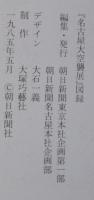 『名古屋大空襲展』図録
編集・発行　朝日新聞東京本社企画第一部
朝日新聞名古屋本社企画部
デザイン　大石一義
制作　大塚巧藝社
一九八五年五月　©朝日新聞社